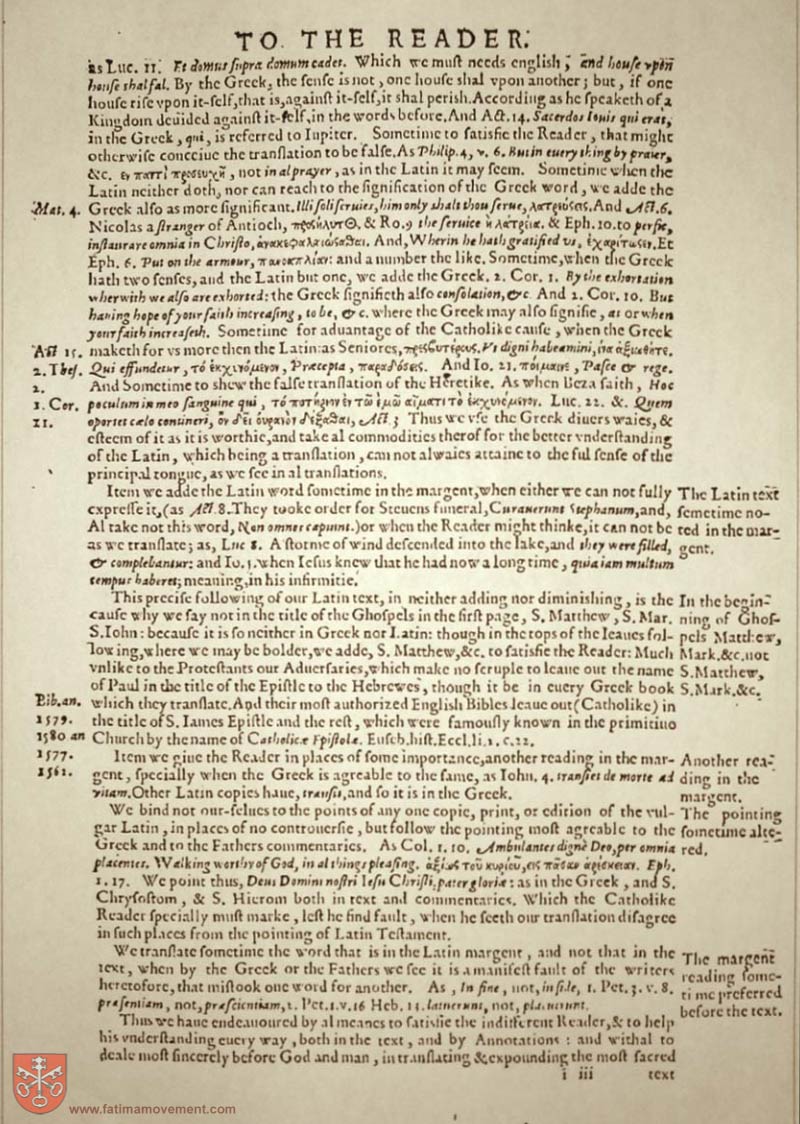 TO THE READER.
as Luc. 11. Et domus supra domum cadet. Which we must needs english, and house vpon
house shal fal. By the Greek, the sense is not, one house shal vpon another; but, if one
house rise vpon it-self, that is, against it-self, it shal perish. According as he speaketh of a
Kingdom deuided against it-self, in the words before. And Act. 14. Sacerdos Iouis qui erat,
in the Greek, qui, is referred to Iupiter. Sometime to satisfie the Reader, that might
otherwise conceiue the translation to be false. As Philip. 4, v. 6. But in euery thing by praier,
&c. ἐν παντὶ προσευχῇ, not in al prayer, as in the Latin it may seem. Sometime when the
Latin neither doth, nor can reach to the signification of the Greek word, we adde the
Mat. 4. Greek also as more significant. Illi soli seruies, him only shalt thou serue, λατρεύσεις. And Act. 6.
Nicolas a stranger of Antioch, προσήλυτΘ. & Ro. 9 the seruice ἡ λατρεία. & Eph. 10. to perfit,
instaurare omnia in Christo, ἀνακεφαλαιώσαθαι. And, Wherin he hath gratified vs, ἐχαρίτωσεν. Et
Eph. 6. Put on the armour, πανοπλίαν: and a number the like. Sometime, when the Greek
hath two senses, and the Latin but one, we adde the Greek. 2. Cor. 1. By the exhortation
wherwith we also are exhorted: the Greek signifieth also consolation, &c. And 2. Cor. 10. But
hauing hope of your faith increasing, to be, &c. where the Greek may also signifie, as or when
your faith increaseth. Sometime for aduantage of the Catholike cause, when the Greek
Act 15. maketh for vs more then the Latin: as Seniores, πρεσβυτέρους. Vt digni habeamini, ἵνα ἀξιωθῆτε.
2. Thes. Qui effundetur, τὸ ἐκχυνόμενον, Præcepta, παραδόσεις. And Io. 21. ποίμαινε, Pasce & rege.
2. And Sometime to shew the false translation of the Heretike. As when Beza saith, Hoc
1. Cor. poculum in meo sanguine qui, τὸ ποτήριον ἐν τῷ ἐμῷ αἵματι τὸ ἐκχυνόμενον. Luc. 22. & Quem
11. oportet cælo contineri, ὃν δεῖ οὐρανὸν δέξαθαι, Act. 3 Thus we vse the Greek diuers waies, &
esteem of it as it is worthie, and take al commodities therof for the better vnderstanding
of the Latin, which being a translation, can not alwaies attaine to the ful sense of the
principal tongue, as we see in al translations.
Item we adde the Latin word sometime in the margent, when either we can not fully The Latin text
expresse it, (as Act. 8. They tooke order for Steuens funeral, Curauerunt Stephanum, and, sometime no-
Al take not this word, Non omnes capiunt.) or when the Reader might thinke, it can not be ted in the mar-
as we translate; as, Luc 8. A storme of wind descended into the lake, and they were filled, gent.
& complebantur: and Io. 5. when Iesus knew that he had now a long time, quia iam multum
tempus haberet; meaning, in his infirmitie.
This precise following of our Latin text, in neither adding nor diminishing, is the In the begin-
cause why we say not in the title of the Ghospels in the first page, S. Matthew, S. Mar. ning of Ghos-
S. Iohn: because it is so neither in Greek nor Latin: though in the tops of the leaues fol- pels Matthew,
lowing, where we may be bolder, we adde, S. Matthew, &c. to satisfie the Reader: Much Mark. &c. not
vnlike to the Protestants our Aduersaries, which make no scruple to leaue out the name S. Matthew,
of Paul in the title of the Epistle to the Hebrewes, though it be in euery Greek book S. Mark. &c.
Bib. an. which they translate. And their most authorized English Bibles leaue out (Catholike) in
1579. the title of S. Iames Epistle and the rest, which were famously known in the primitiuo
1580 an Church by the name of Catholicæ Epistolæ. Euseb. hist. Eccl. li. 2. c. 22.
1577. Item we giue the Reader in places of some importance, another reading in the mar- Another rea-
1562. gent, specially when the Greek is agreable to the same, as Iohn. 4. transiet de morte ad ding in the
vitam. Other Latin copies haue, transiit, and so it is in the Greek. margent.
We bind not our-selues to the points of any one copie, print, or edition of the vul- The pointing
gar Latin, in places of no controuersie, but follow the pointing most agreable to the sometime alte-
Greek and to the Fathers commentaries. As Col. 1. 10. Ambulantes dignè Deo, per omnia red.
placentes. Walking worthy of God, in al things pleasing. ἀξίως τοῦ κυρίου, εἰς πᾶσαν ἀρέσκειαν. Eph.
1. 17. We point thus, Deus Domini nostri Iesu Christi, pater gloriæ: as in the Greek, and S.
Chrysostom, & S. Hierom both in text and commentaries. Which the Catholike
Reader specially must marke, lest he find fault, when he seeth our translation disagree
in such places from the pointing of Latin Testament.
We translate sometime the word that is in the Latin margent, and not that in the The margent
text, when by the Greek or the Fathers we see it is a manifest fault of the writers reading some-
heretofore, that mistook one word for another. As, In fine, not, in fide, 1. Pet. 3. v. 8. time preferred
præsentiam, not, præscientiam, 2. Pet. 1. v. 16 Heb. 13. latuerunt, not, placuerunt. before the text.
Thus we haue endeauoured by al meanes to satisfie the indifferent Reader, & to help
his vnderstanding euery way, both in the text, and by Annotations: and withal to
deale most sincerely before God and man, in translating & expounding the most sacred
i iii text
www.fatimamovement.com